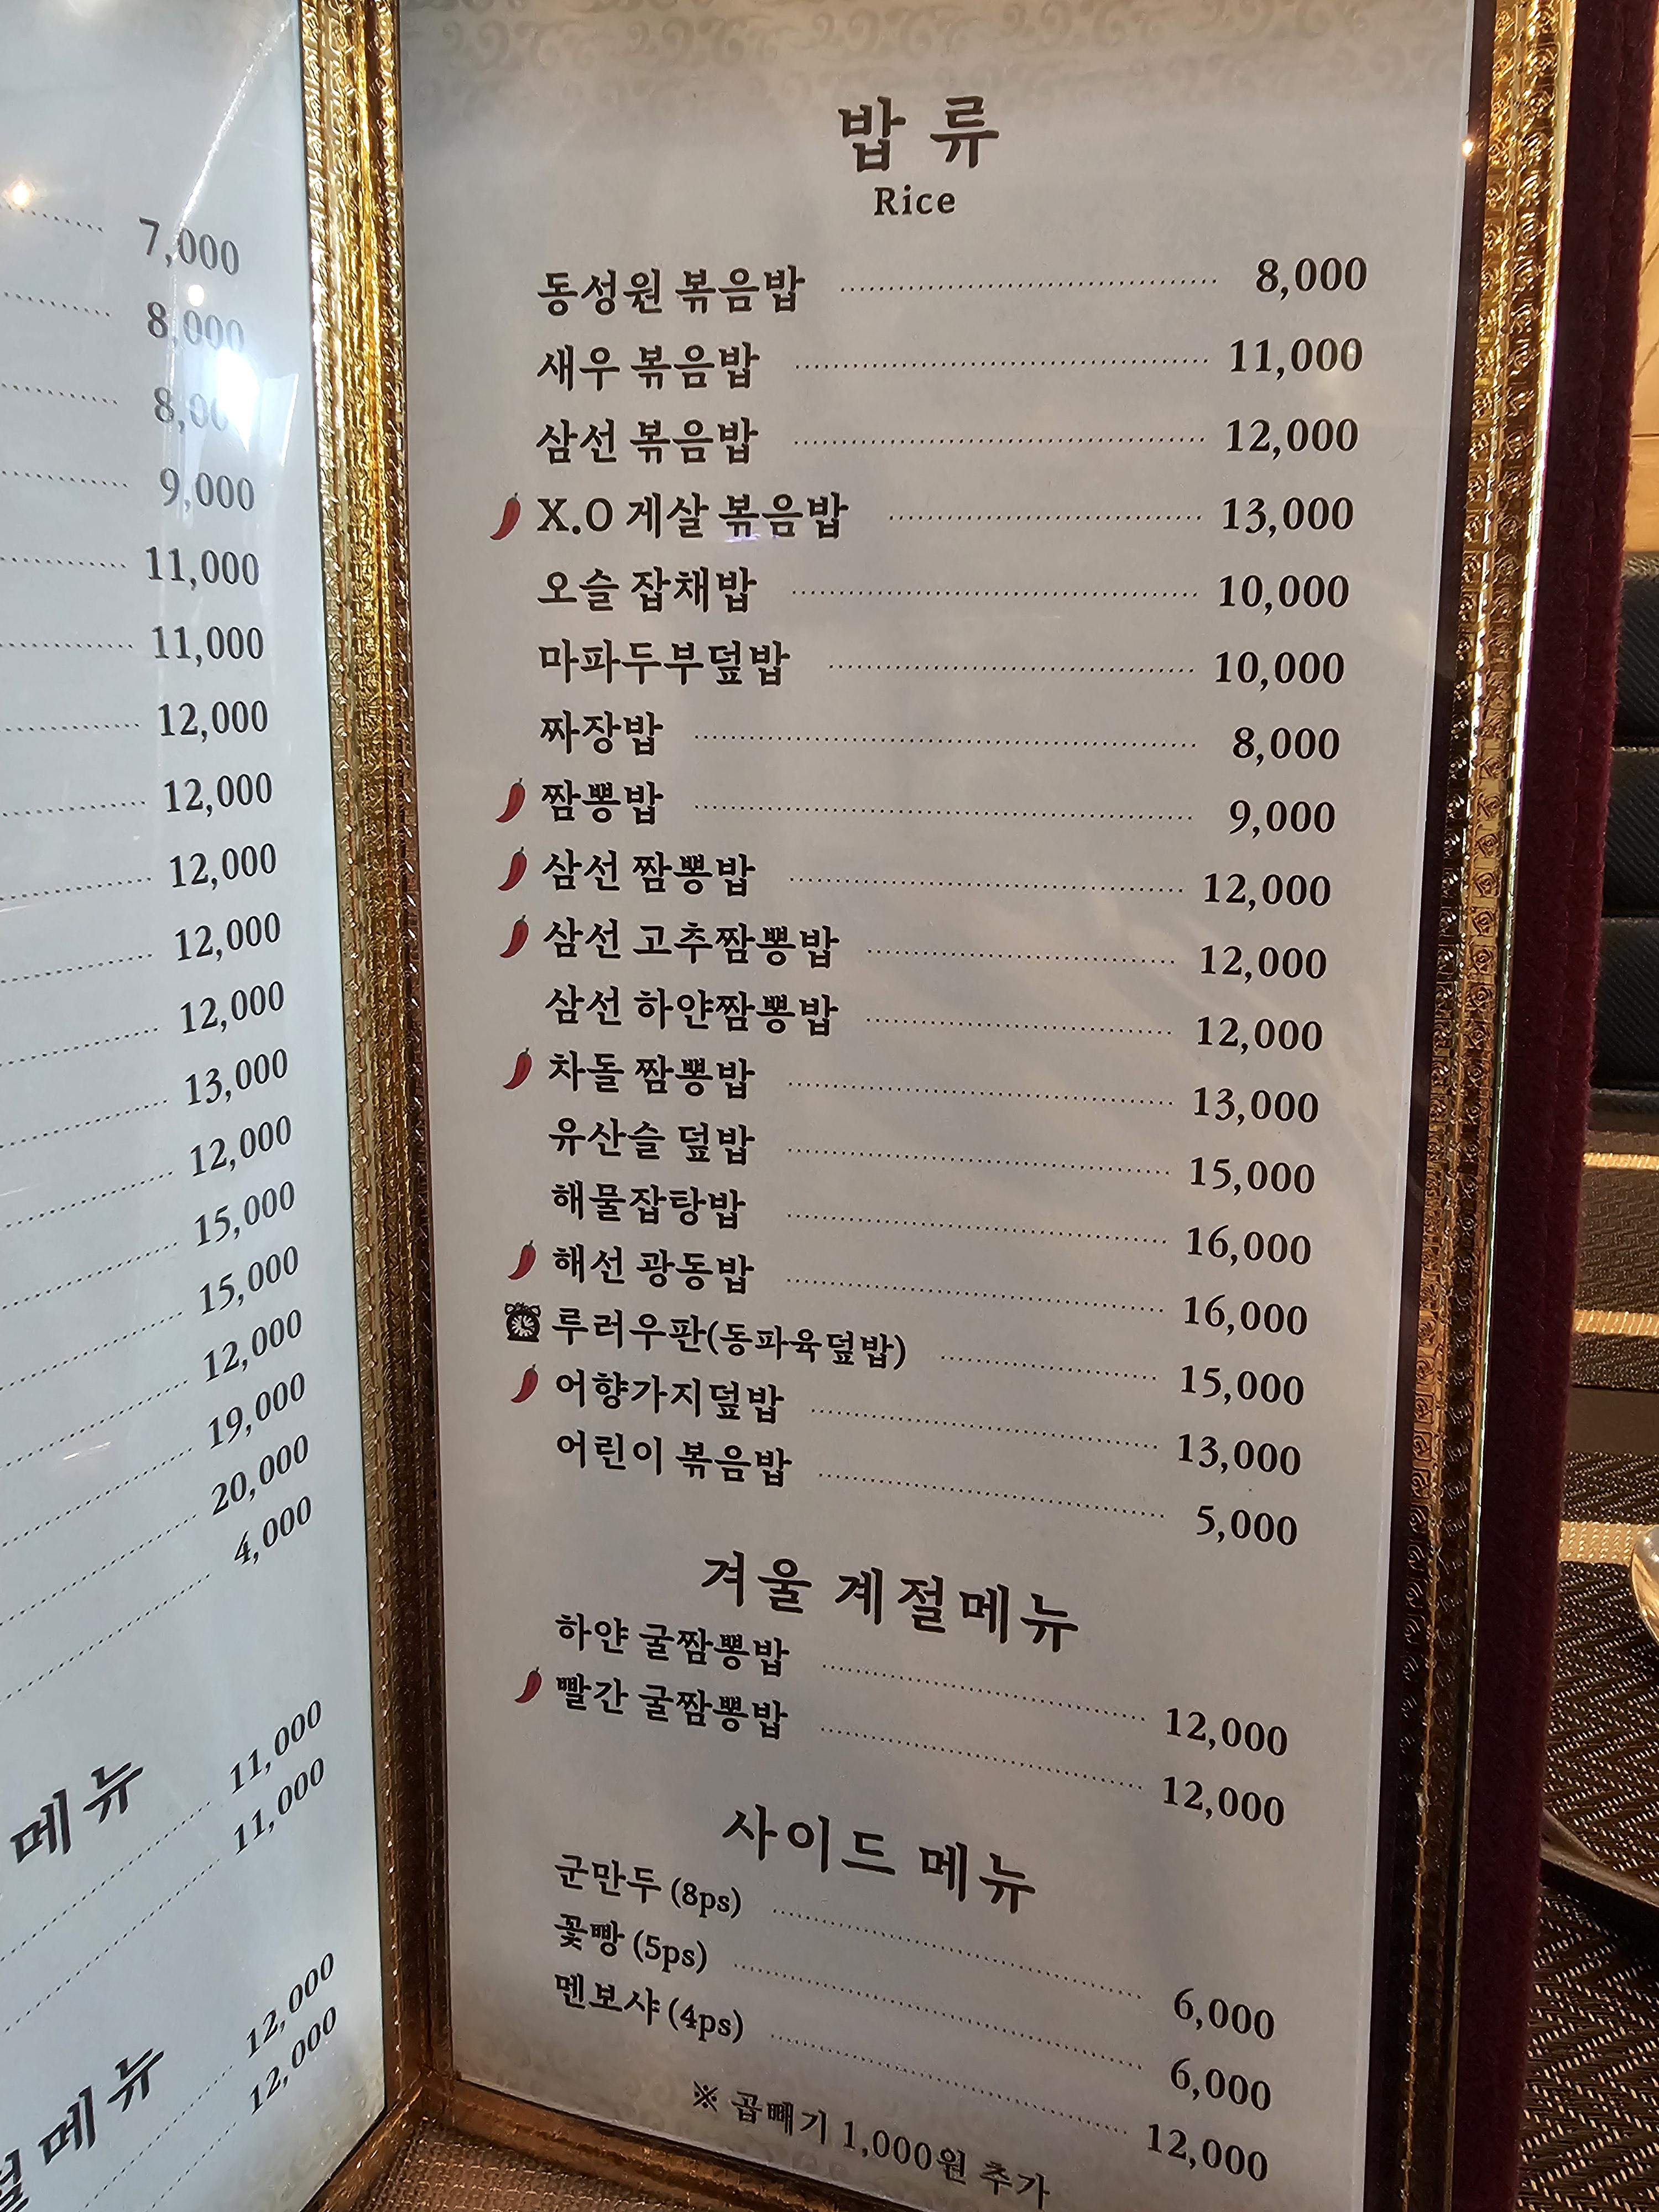 7,000
8,000
8,00
9,000
11,000
11,000
12,000
12,000
12,000
12,000
12,000
13,000
12,000
15,000
15,000
12,000
19,000
20,000
4,000
메뉴
11,000
11,000
메뉴
12,000
12,000
밥 류
Rice
동성원 볶음밥 8,000
새우 볶음밥 11,000
삼선 볶음밥 12,000
X.O 게살 볶음밥 13,000
오슬 잡채밥 10,000
마파두부덮밥 10,000
짜장밥 8,000
짬뽕밥 9,000
삼선 짬뽕밥 12,000
삼선 고추짬뽕밥 12,000
삼선 하얀짬뽕밥 12,000
차돌 짬뽕밥 13,000
유산슬 덮밥 15,000
해물잡탕밥 16,000
해선 광동밥 16,000
루러우판(동파육덮밥) 15,000
어향가지덮밥 13,000
어린이 볶음밥 5,000
겨울 계절메뉴
하얀 굴짬뽕밥 12,000
빨간 굴짬뽕밥 12,000
사이드 메뉴
군만두 (8ps) 6,000
꽃빵 (5ps) 6,000
멘보샤 (4ps) 12,000
※ 곱빼기 1,000원 추가